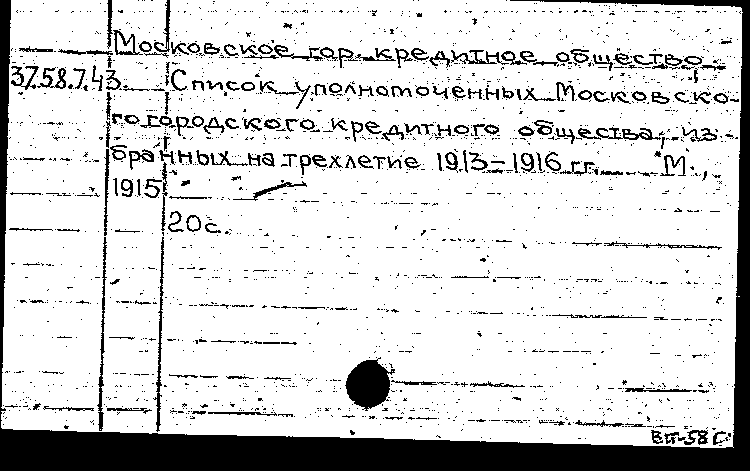 Московское гор. кредитное общество.
37.58.7.43. Список уполноточенных Московско-
го городского кредитного общества, из-
бранных на трехлетие 1913-1916 гг. М.,
1915
20с.